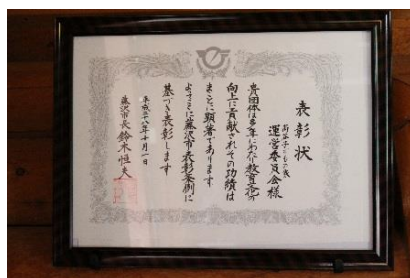 表彰状
運営委員会様
貴団体は多年にわたり教育文化の
向上に貢献されその功績は
まことに顕著であります
よってここに藤沢市表彰条例に
基づき表彰します
平成二十八年十月一日
藤沢市長 鈴木恒夫